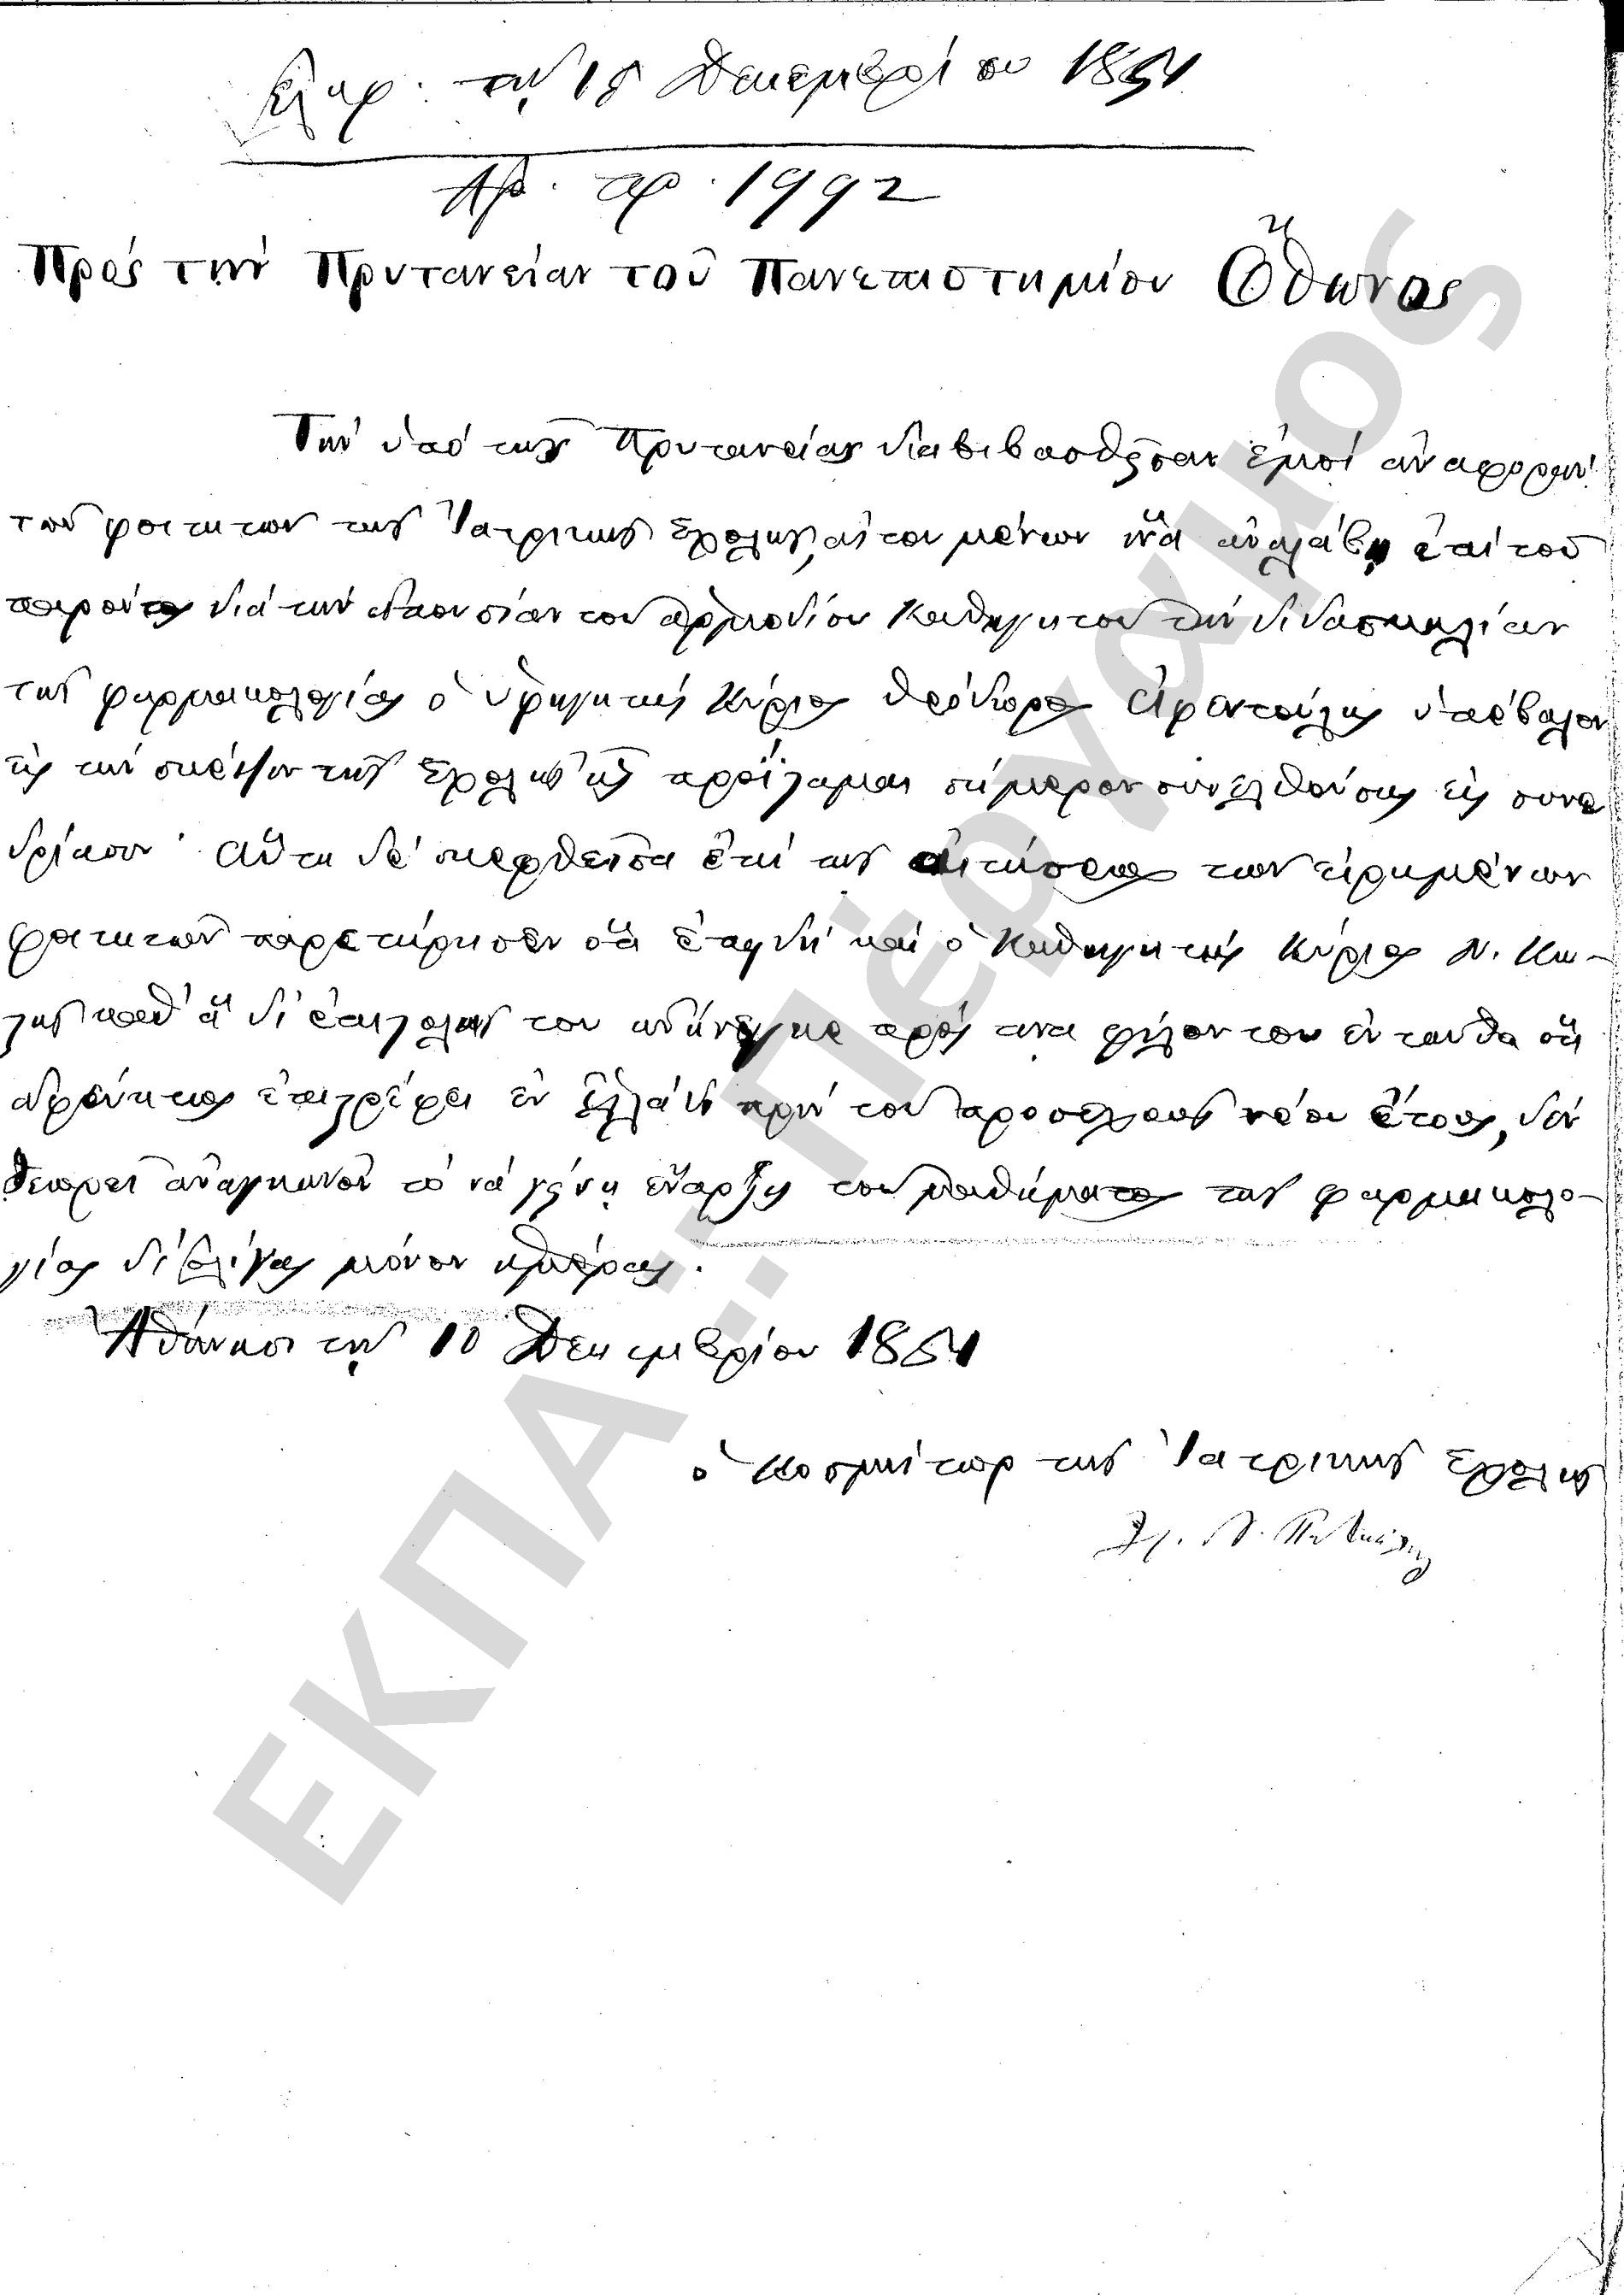 Ἐλήφ. τῇ 15 Δεκεμβρίου 1851
Ἀρ. πρ. 1992
Πρὸς τὴν Πρυτανείαν τοῦ Πανεπιστημίου Ὄθωνος
Τὴν ὑπὸ τῆς Πρυτανείας διαβιβασθεῖσαν ἐμοὶ ἀναφορὰν
τῶν φοιτητῶν τῆς Ἰατρικῆς Σχολῆς, αἰτουμένων ἵνα ἀναλάβῃ ἐπὶ τοῦ
παρόντος διὰ τὴν ἀπουσίαν τοῦ ἁρμοδίου Καθηγητοῦ τὴν διδασκαλίαν
τῆς φαρμακολογίας ὁ ὑφηγητὴς Κύριος Θεόδωρος Ἀφεντούλης ὑπέβαλον
εἰς τὴν σκέψιν τῆς Σχολῆς ἧς προΐσταμαι σήμερον συνελθούσης εἰς συνε
δρίασιν· Αὕτη δὲ σκεφθεῖσα ἐπὶ τῆς αἰτήσεως τῶν εἰρημένων
φοιτητῶν παρετήρησεν ὅτι ἐπειδὴ καὶ ὁ Καθηγητὴς Κύριος Ν. Κω-
στῆς καθ' ἃ δι' ἐπιστολῆς του ἀνήγγειλε πρός τινα φίλον του ἐνταῦθα ὅτι
ἀφεύκτως ἐπιστρέφει ἐν Ἑλλάδι πρὶν τοῦ προσεχοῦς νέου ἔτους, δὲν
θεωρεῖ ἀναγκαῖον τὸ νὰ γίνῃ ἔναρξις τοῦ μαθήματος τῆς φαρμακολο-
γίας δι' ὀλίγας μόνον ἡμέρας.
Ἀθήνησι τῇ 10 Δεκεμβρίου 1851
ὁ Κοσμήτωρ τῆς Ἰατρικῆς Σχολῆς
ΕΚΠΑ:: Πέργαμος